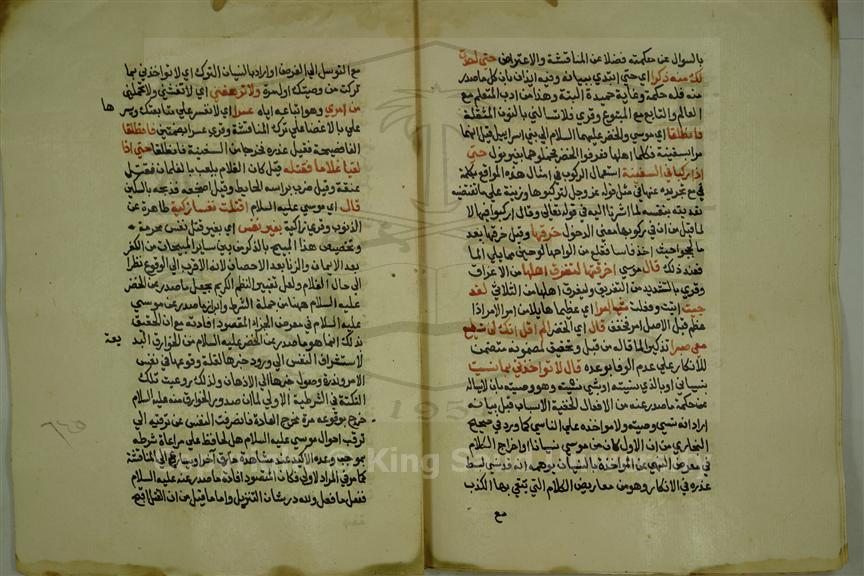 بالسوال عن حكمته فضلا عن المناقشة والاعتراض حتى احدث
لك منه ذكرا اي حتى ابتدي ببيانه وفيه ايذان بان كل ما صدر
عنه فله حكمة وغاية حميدة البتة وهذا من ادب المتعلم مع
العالم والتابع مع المتبوع وقري فلا تسالني بالنون المثقلة
فانطلقا اي موسى والخضر عليهما السلام الى بني اسراييل قيل انهما
مرا بسفينة فكلما اهلها فعرفوا الخضر فحملوهما بغير نول حتى
اذا ركبا في السفينة استعمال الركوب في امثال هذه المواقع بكلمة
في مع تجريده عنها في مثل قوله عز وجل لتركبوها وزينة على ما تقتضيه
تعديته بنفسه لما اشرنا اليه في قوله تعالى وقال اركبوا فيها لا
لما قيل من ان في ركوبها معنى الدخول خرقها وقيل خرقها بعد
ما لججوا حيث اخذ فاسا فقلع من الواحها لوحين مما يلي الما
فعند ذلك قال موسى اخرقتها لتغرق اهلها من الاغراق
وقري بالتشديد من التغريق وليغرق اهلها من الثلاثي لقد
جيت اتيت وفعلت شيئا امرا اي عظيما هايلا من امر الامر اذا
عظم قيل الاصل امر فخفف قال اي الخضر الم اقل انك لن تستطيع
معي صبرا تذكيرا لما قاله من قبل وتحقيق لمضمونه متضمن
للانكار على عدم الوفا بوعده قال لا تواخذني بما نسيت
بنسياني او بالذي نسيته او بشي نسيته وهو وصيته بان لا يساله
عن حكمة ما صدر عنه من الافعال الخفية الاسباب قبل بيانه
اراد انه نسي وصيته ولا مواخذة على الناسي كما ورد في صحيح
البخاري من ان الاول كان من موسى نسيانا او اخراج الكلام
في معرض النهي عن المواخذة بالنسيان يوهمه انه قد نسي لبسط
عذره في الانكار وهو من معاريض الكلام التي يتقى بها الكذب
مع
مع التوسل الى الغرض او اراد بالنسيان الترك اي لا تواخذني بما
تركت من وصيتك اول مرة ولا ترهقني اي لا تغشني ولا تحملني
من امري وهو اتباعه اياه عسرا اي لا تعسر علي متابعتك ويسرها
علي بالاغضا عن ترك المناقشة وقري عسرا بضمتين فانطلقا
الفا فصيحة فقيل عذره فخرجا من السفينة فانطلقا حتى اذا
لقيا غلاما فقتله قيل كان الغلام يلعب بالغلمان ففتل
عنقه وقيل ضرب براسه الحايط وقيل اضجعه فذبحه بالسكين
قال اي موسى عليه السلام اقتلت نفسا زكية طاهرة من
الذنوب وقري زاكية بغير نفس اي بغير قتل نفس محرمة
وتخصيص هذا المبيح بالذكر من بين ساير المبيحات من الكفر
بعد الايمان والزنا بعد الاحصان لانه الاقرب الى الوقوع نظرا
الى حال الغلام ولعل تغيير النظم الكريم بجعل ما صدر عن الخضر
عليه السلام ههنا من جملة الشرط وابراز ما صدر عن موسى
عليه السلام في معرض الجزاء المقصود افادته مع ان الحقيق
بذلك انما هو ما صدر عن الخضر عليه السلام من الخوارق البديعة
لاستشراف النفس الى ورود خبرها لقلة وقوعها في نفس
الامر وندرة وصول خبرها الى الاذهان ولذلك روعيت تلك
النكتة في الشرطية الاولى لما ان صدور الخوارق منه عليه السلام
خرج بوقوعه مرة مخرج العادة فانصرفت النفس عن ترقبه الى
ترقب احوال موسى عليه السلام هل يحافظ على مراعاة شرطه
بموجب وعده الاكيد عند مشاهدة خارق اخر او يسارع الى المناقشة
كما مر في المرة الاولى فكان المقصود افادة ما صدر عنه عليه السلام
ففعل ما فعل ولله در شان التنزيل واما ما قيل من ان القتل اقبح